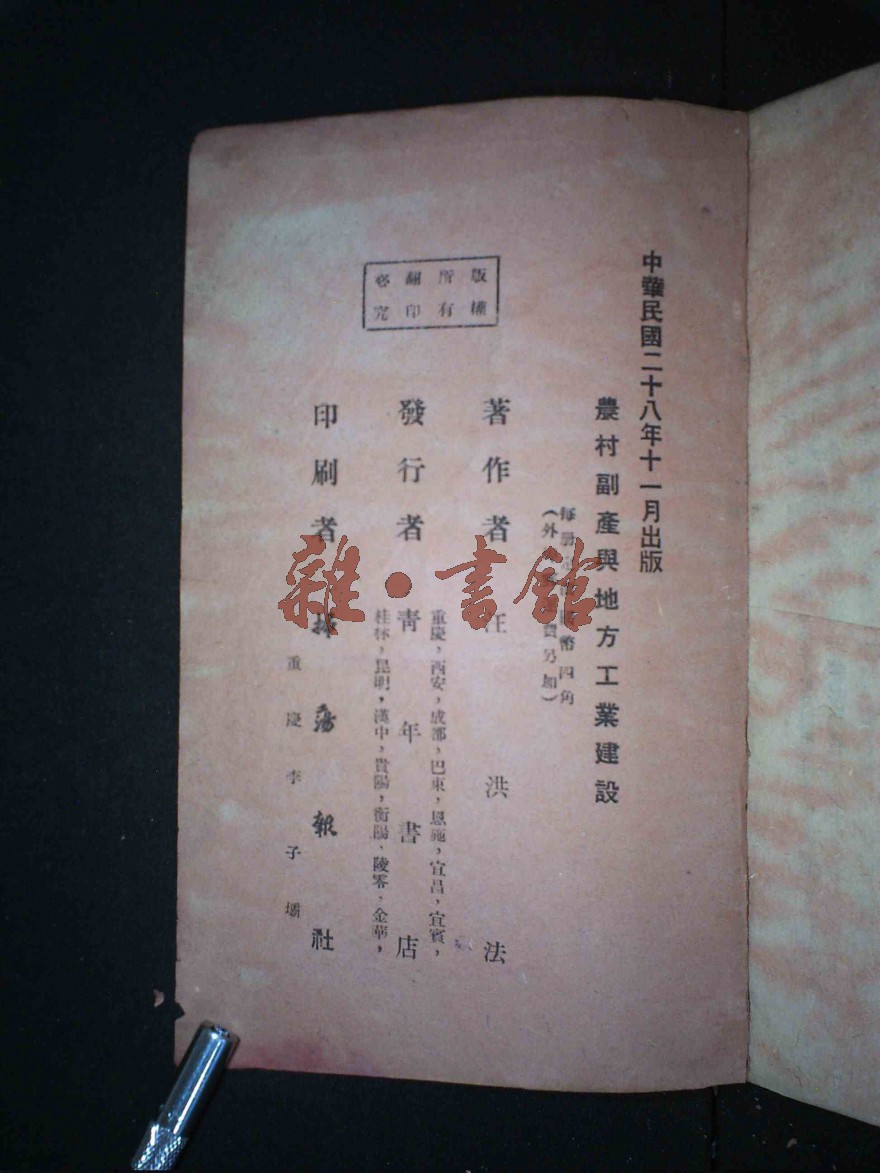 中華民國二十八年十一月出版
農村副產與地方工業建設
每册 幣四角
(外 費另加)
著作者 汪洪法
重慶,西安,成都,巴東,恩施,宜昌,宜賓,
發行者 青年書店
桂林,昆明,漢中,貴陽,衡陽、陵零、金華,
印刷者 掃蕩報社
重慶李子壩
版權所有翻印必究
雜·書館